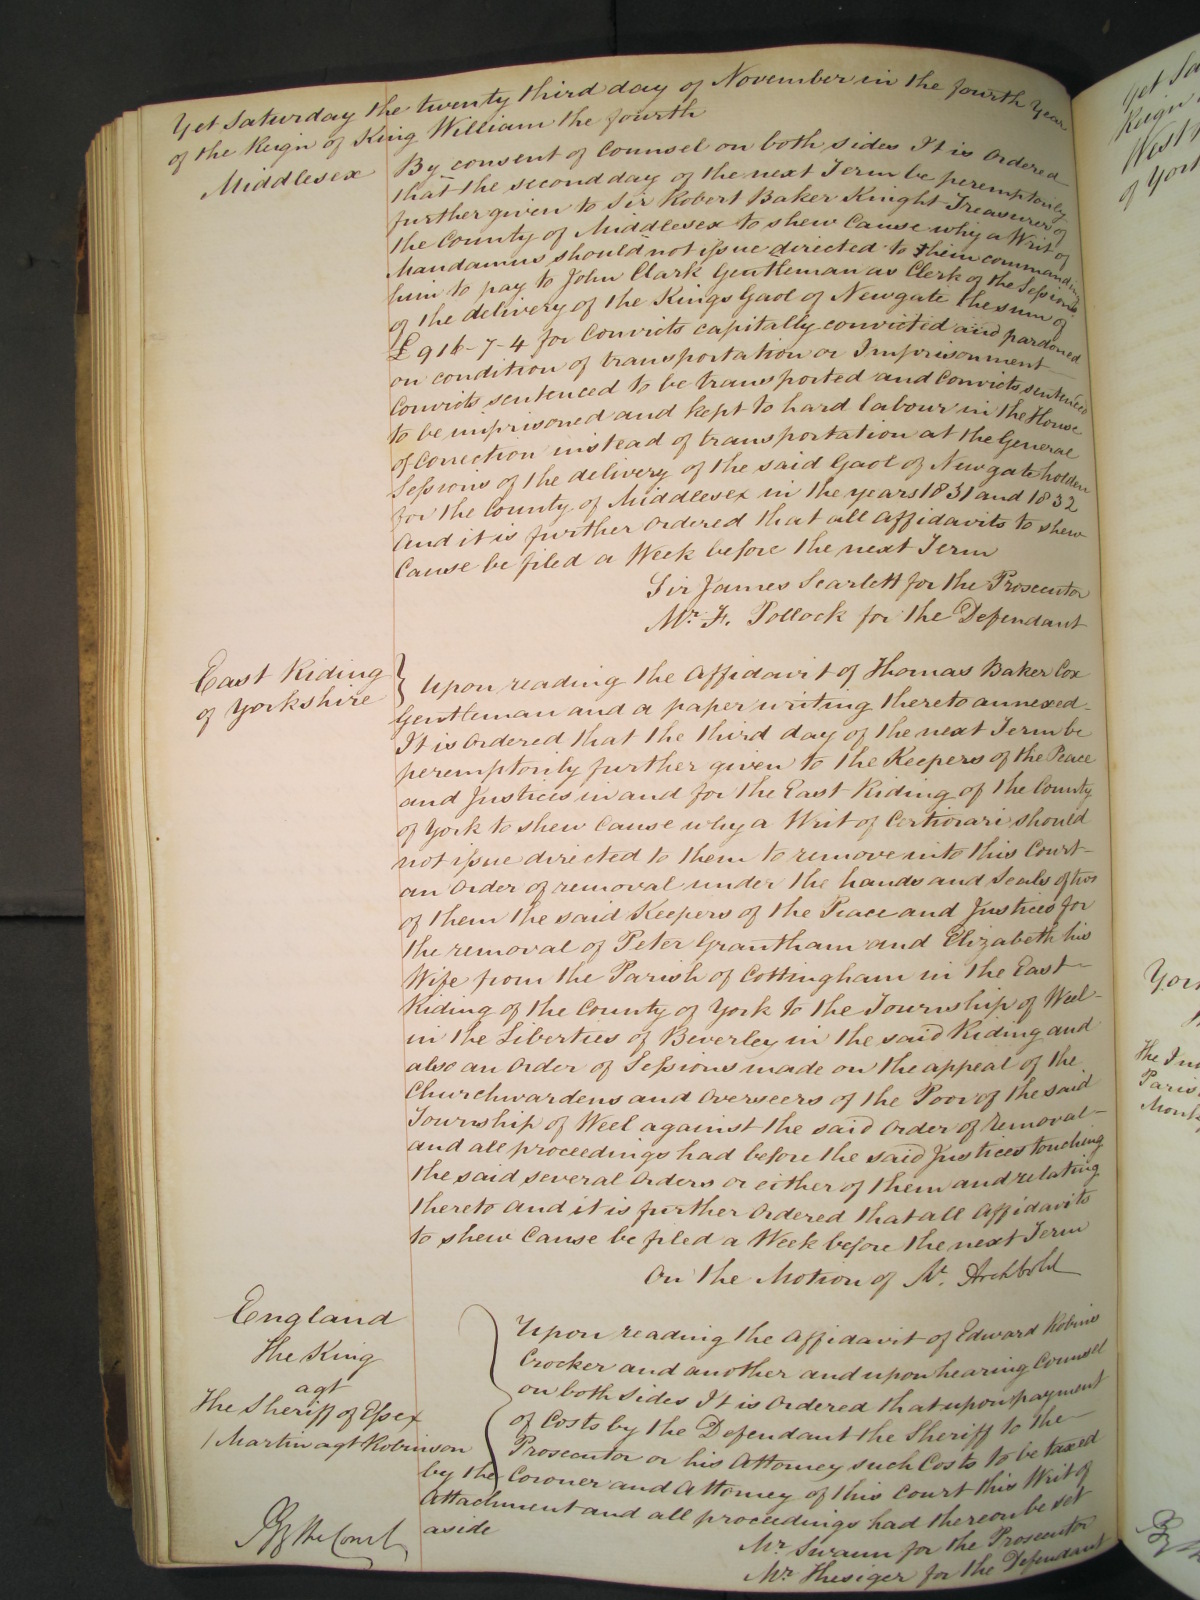 Yet Saturday the twenty third day of November in the fourth Year
of the Reign of King William the fourth
Middlesex By consent of Counsel on both sides It is Ordered
that the second day of the next Term be peremptorily
further given to Sir Robert Baker Knight Treasurer of
the County of Middlesex to shew Cause why a Writ of
Mandamus should not issue directed to them commanding
him to pay to John Clark Gentleman as Clerk of the Sessions
of the delivery of the Kings Gaol of Newgate the sum of
£916-7-4 for Convicts capitally convicted and pardoned
on condition of transportation or Imprisonment
Convicts sentenced to be transported and Convicts sentenced
to be imprisoned and kept to hard labour in the House
of Correction instead of transportation at the General
Sessions of the delivery of the said Gaol of Newgate holden
for the County of Middlesex in the years 1831 and 1832
And it is further Ordered that all Affidavits to shew
Cause be filed a Week before the next Term
Sir James Scarlett for the Prosecutor
Mr. F. Pollock for the Defendant
East Riding
of Yorkshire
Upon reading the Affidavit of Thomas Baker Cox
Gentleman and a paper writing thereto annexed
It is Ordered that the third day of the next Term be
peremptorily further given to the Keepers of the Peace
and Justices in and for the East Riding of the County
of York to shew Cause why a Writ of Certiorari should
not issue directed to them to remove into this Court
an Order of removal under the hands and Seals of two
of them the said Keepers of the Peace and Justices for
the removal of Peter Grantham and Elizabeth his
Wife from the Parish of Cottingham in the East
Riding of the County of York to the Township of Weel
in the Liberties of Beverley in the said Riding and
also an Order of Sessions made on the appeal of the
Churchwardens and Overseers of the Poor of the said
Township of Weel against the said Order of removal
and all proceedings had before the said Justices touching
the said several Orders or either of them and relating
thereto and it is further Ordered that all Affidavits
to shew Cause be filed a Week before the next Term
On the Motion of Mr. Archbold
England
The King
agt
The Sheriff of Essex
/ Martin agt Robinson
Upon reading the Affidavit of Edward Robins
Crocker and another and upon hearing Counsel
on both sides It is Ordered that upon payment
of Costs by the Defendant the Sheriff to the
Prosecutor or his Attorney such Costs to be taxed
by the Coroner and Attorney of this Court this Writ of
Attachment and all proceedings had thereon be set
aside
Mr. Swann for the Prosecutor
Mr. Thesiger for the Defendant
By the Court